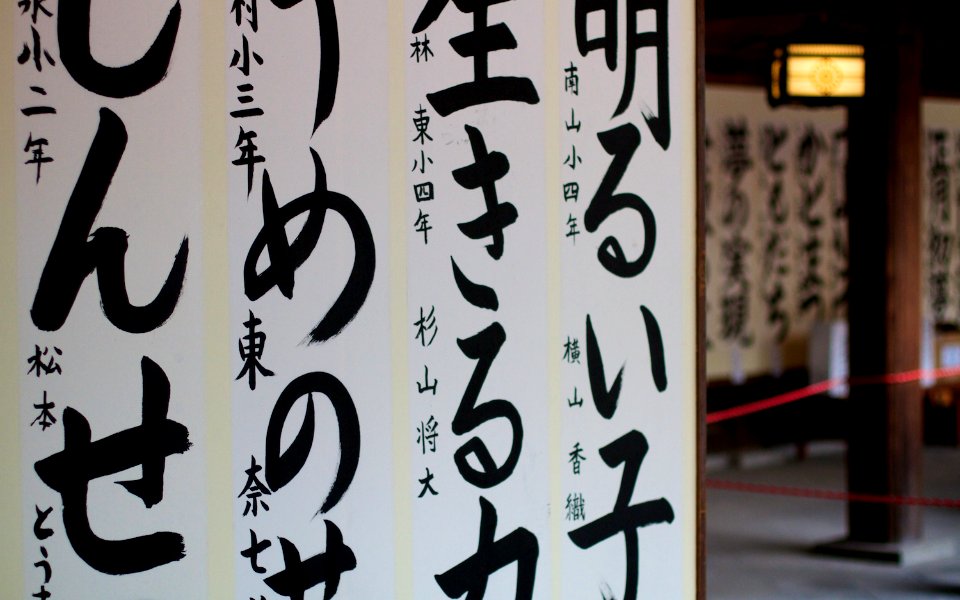 正月
かどまつ
ともだち
夢の実現
明るい子
南山小四年 横山香織
生きる力
林東小四年 杉山将大
めのせ
村小三年 東奈七
しんせ
小二年 松本とう